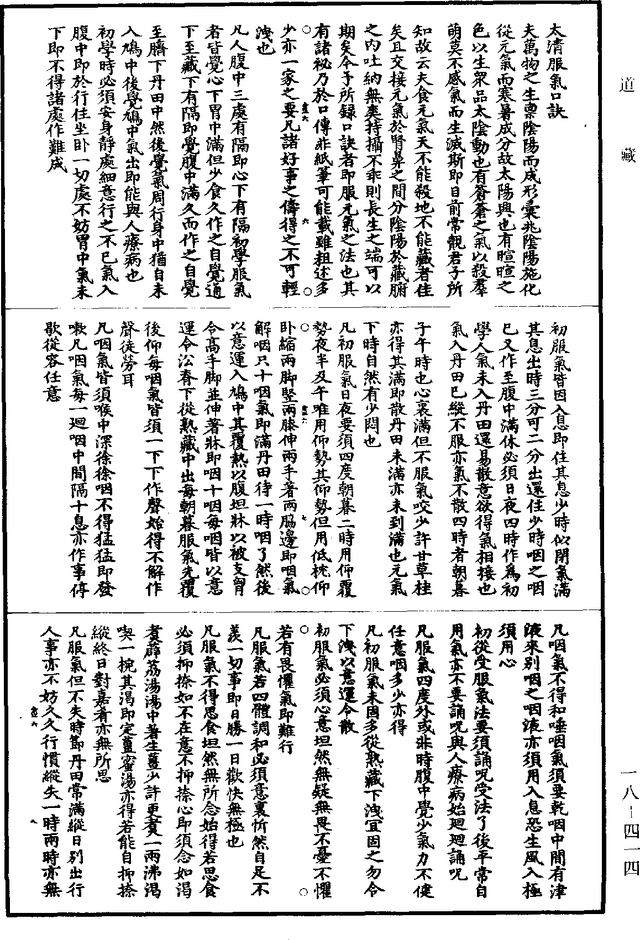 道藏
太清服氣口訣
夫萬物之生稟陰陽而成形橐兆陰陽施化
從元氣而寒暑成分故太陽興也有暄暄之
色以生眾品太陰動也有蒼蒼之氣以殺羣
萌莫不感氣而生滅斯即目前常覩君子所
知故云夫食元氣天不能殺地不能藏者佳
矣且交接元氣於腎鼻之間分陰陽於藏腑
之內吐納無奧持攝不乖則長生之端可以
期矣今予所錄口訣者即服元氣之法也其
有諸祕乃於口傳非紙筆可能載雖粗述多
少亦一家之要凡諸好事之儔得之不可輕
洩也
凡人腹中三處有隔即心下有隔初學服氣
者皆覺心下胃中滿但少食久作之自覺通
下至藏下有隔即覺腹中滿久而作之自覺
至臍下丹田中然後覺氣周行身中猶自未
入鳩中後覺鳩中氣出即能與人療病也
初學時必須安身靜處細意行之不已氣入
腹中即於行住坐卧一切處不妨胃中氣未
下即不得諸處作難成
初服氣皆因入息即住其息少時似閉氣滿
其息出時三分可二分出還住少時咽之咽
已又作至腹中滿休必須日夜四時作為初
學人氣未入丹田還易散意欲得氣相接也
氣入丹田已縱不服亦氣不散四時者朝暮
子午時也心裏滿但不服氣咬少許甘草桂
亦得其滿即散丹田未滿亦未到滿也元氣
下時自然有少悶也
凡初服氣日夜要須四度朝暮二時用仰覆
勢夜半及午唯用仰勢其仰勢但用低枕仰
卧縮兩脚竪兩膝伸兩手著兩脇邊即咽氣
解咽只十咽氣即滿丹田待一時咽了然後
以意運入鳩中其覆熱以腹坦牀以被支胷
令高手脚並伸著牀即咽十咽每咽皆以意
運令㳂脊下從熟藏中出每朝暮服氣先覆
後仰每咽氣皆須一下下作聲始得不解作
聲徒勞耳
凡咽氣皆須喉中深徐徐咽不得猛猛即發
嗽凡咽氣每一迴咽中間隔十息亦作事停
歇從容任意
凡咽氣不得和唾咽氣須要乾咽中間有津
液來別咽之咽液亦須用入息恐生風入極
須用心
初從受服氣法要須誦呪受法了後平常自
用氣亦不要誦呪與人療病始廻廻誦呪
凡服氣四度外或非時腹中覺少氣力不健
任意咽多少亦得
凡初服氣未固多從熟藏下洩宜固之勿令
下洩以意運令散
初服氣必須心意坦然無疑無畏不憂不懼
若有畏懼氣即難行
凡服氣若四體調和必須意裏忻然自足不
羨一切事即日勝一日歡快無極也
凡服氣不得思食坦然無所念始得若思食
必須抑捺如不在意不抑捺心即須念如渴
煑薜荔湯湯中著生薑少許更煑一兩沸渴
喫一椀其渴即定薑蜜湯亦得若能自抑捺
縱終日對嘉肴亦無所思
凡服氣但不失時即丹田常滿縱日別出行
人事亦不妨久久行慣縱失一時兩時亦無
一八-四一四